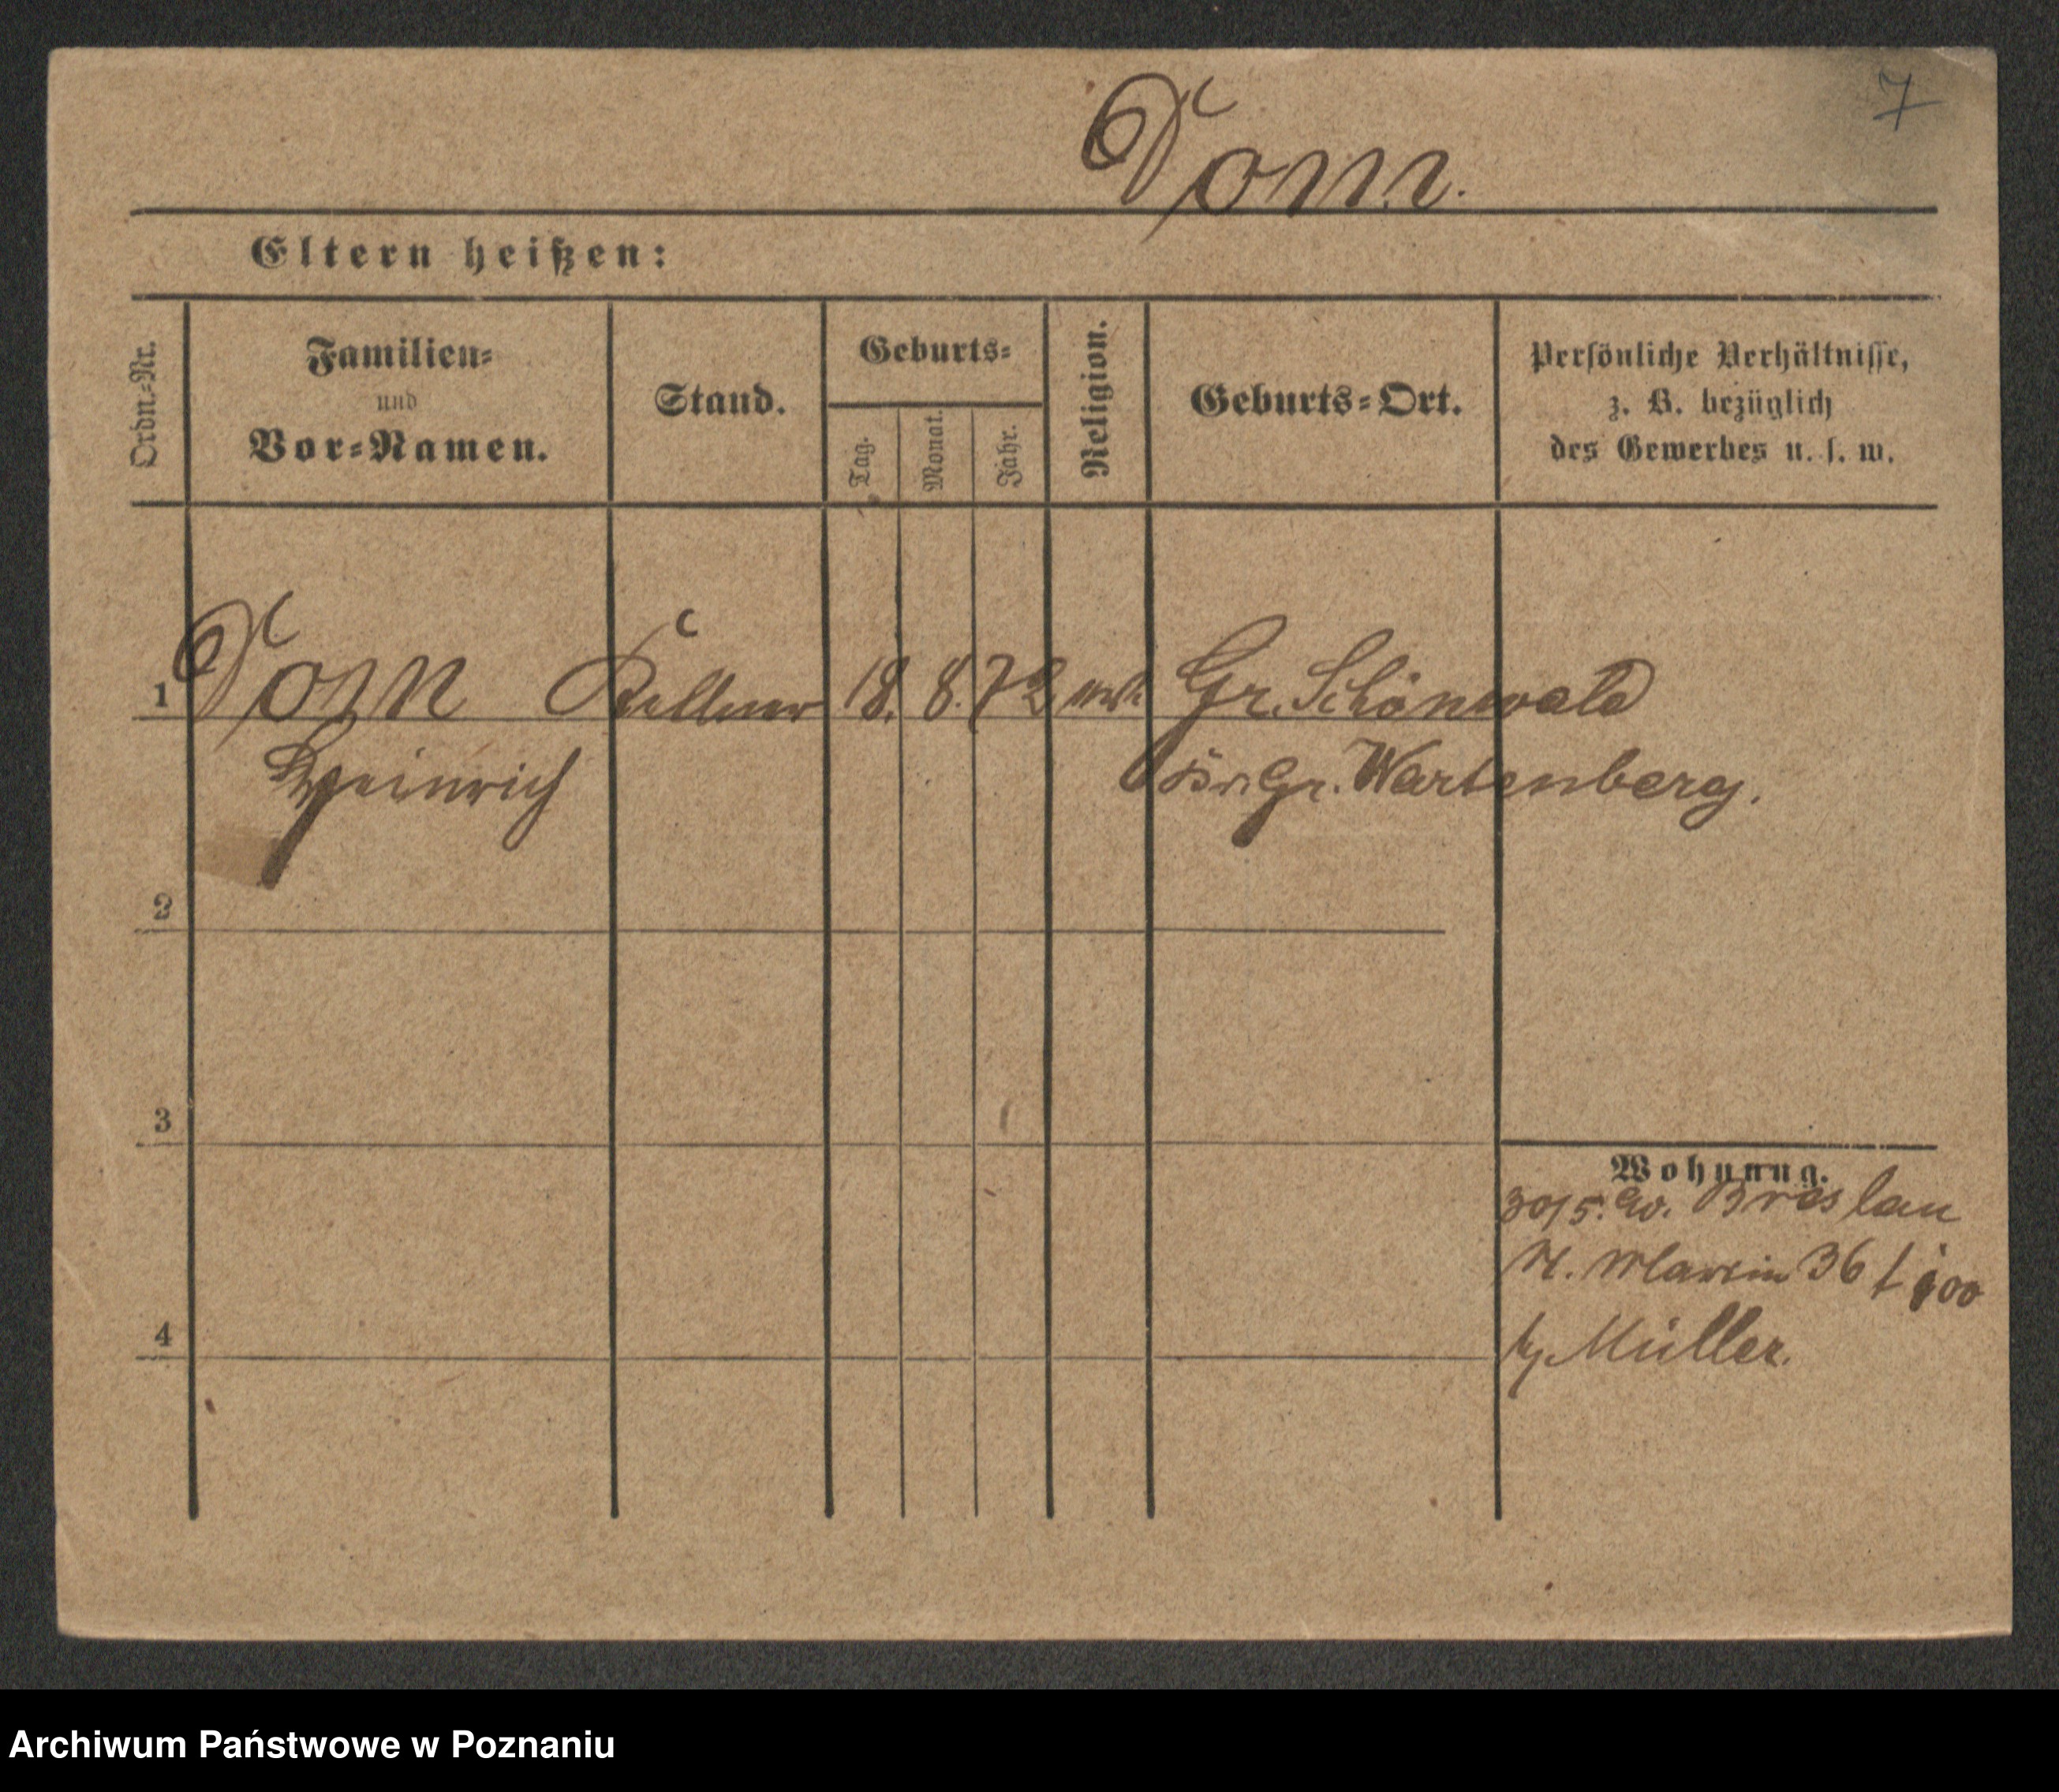 7
Dom.
Eltern heißen:
Ordn.-Nr.
Familien-
und
Vor-Namen.
Stand.
Geburts-
Tag.
Monat.
Jahr.
Religion.
Geburts-Ort.
Persönliche Verhältnisse,
z. B. bezüglich
des Gewerbes u. s. w.
1 Dom Kellner 18. 8. 72 Gr. Schönwald
Heinrich Gr. Wartenberg.
2
3
4
Wohnung.
30/5. Breslau
36
Müller.
Archiwum Państwowe w Poznaniu